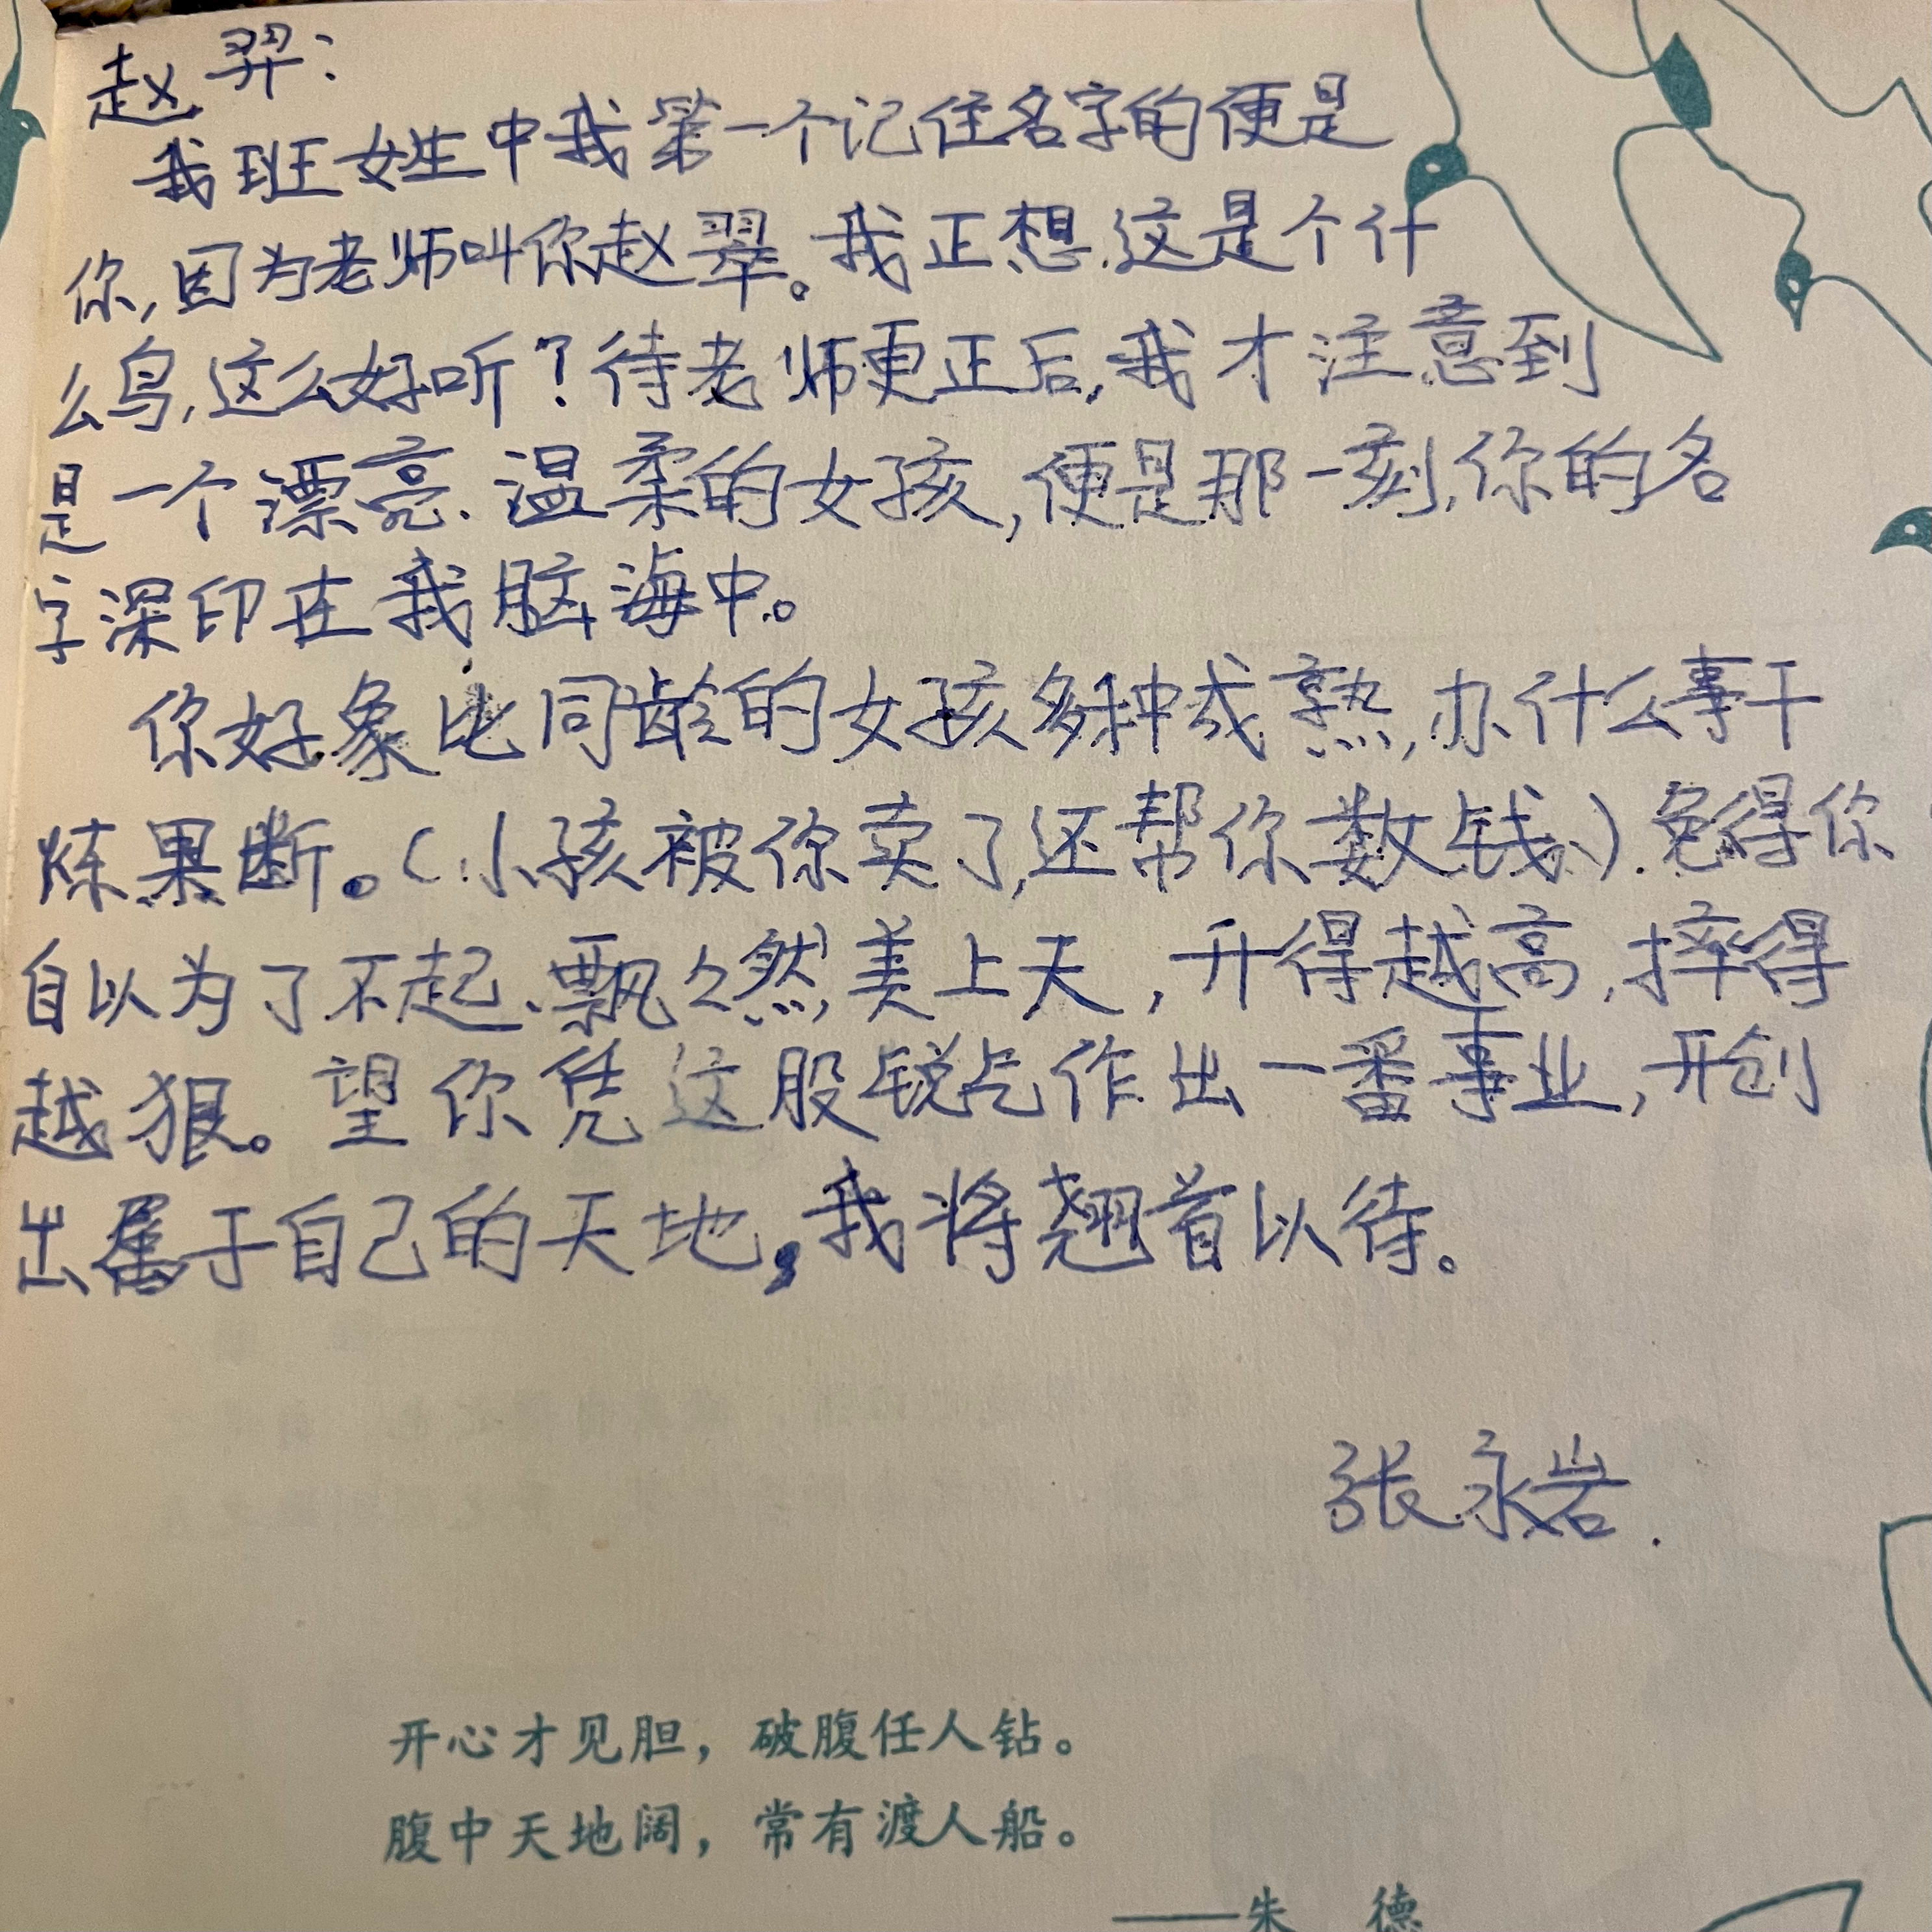 赵羿：
我班女姓中我第一个记住名字的便是
你,因为老师叫你赵翠。我正想,这是个什
么鸟,这么好听？待老师更正后,我才注意到
是一个漂亮、温柔的女孩,便是那一刻,你的名
字深印在我脑海中。
你好象比同龄的女孩多种成熟,办什么事干
炼果断。(小孩被你卖了,还帮你数钱、).免得你
自以为了不起、飘々然,美上天,升得越高,摔得
越狠。望你凭这股锐气作出一番事业,开创
出属于自己的天地,我将翘首以待。
张永岩.
开心才见胆，破腹任人钻。
腹中天地阔，常有渡人船。
——朱 德